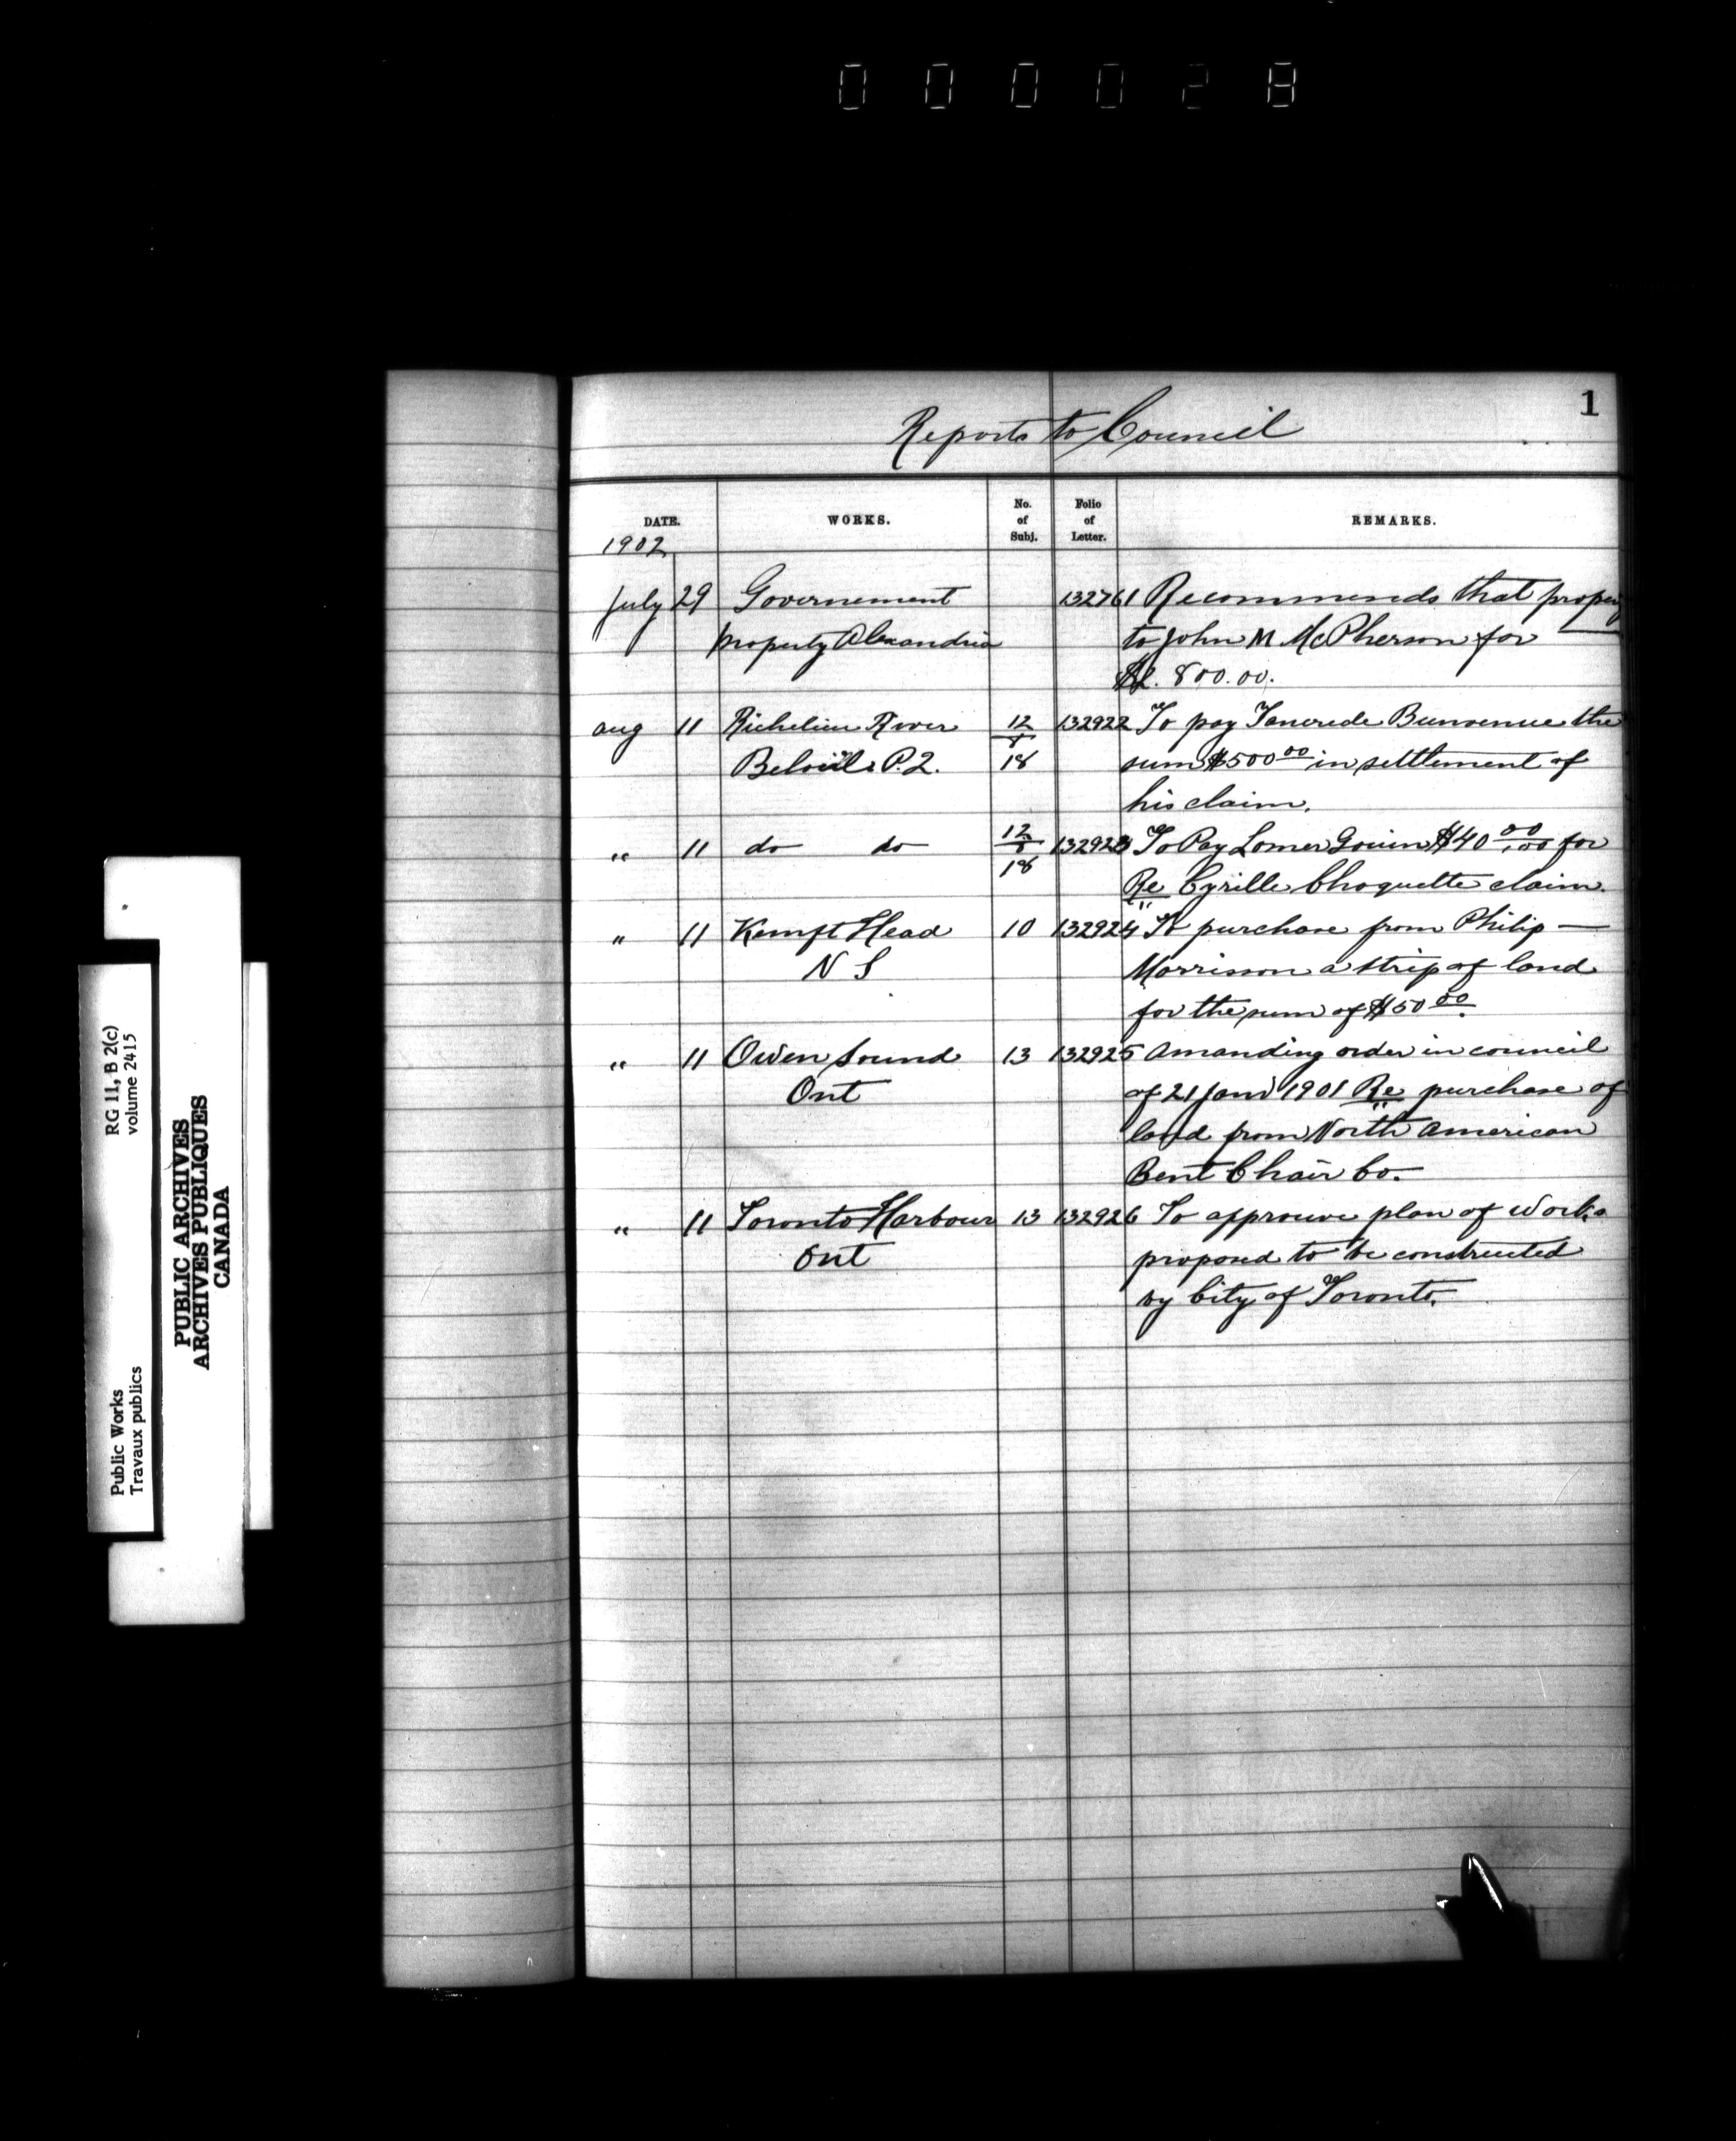 0 0 0 0 2 8
1
Reports to Council
DATE. WORKS. No. of Subj. Folio of Letter. REMARKS.
1902
July 29 Governement 132761 Recommends that proper
property Alexandria to John M McPherson for
800.00.
aug 11 Richelieu River 12/8 132922 To pay Tancrede Bienvenue the
Beloeil P.Q. 18 sum $500 00 in settlement of
his claim.
" 11 do do 12/8 132923 To Pay Lomer Gouin $40 00 for
18 Re Cyrille Choquette claim.
" 11 Kempt Head 10 132924 To purchase from Philip —
N S Morrison a strip of land
for the sum of $50 00
" 11 Owen Sound 13 132925 Amanding order in council
Ont of 21 Janv 1901 Re purchase of
land from North American
Bent Chair Co.
" 11 Toronto Harbour 13 132926 To approuve plan of works
Ont proposed to be constructed
by City of Toronto.
Public Works
Travaux publics
RG 11, B 2(c)
volume 2415
PUBLIC ARCHIVES
ARCHIVES PUBLIQUES
CANADA